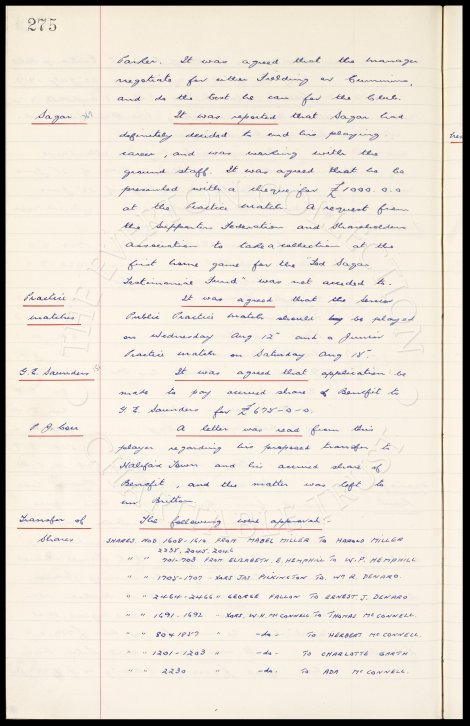 275
Parker. It was agreed that the manager
negotiate for either Fielding or Cummins,
and do the best he can for the Club.
Sagar It was reported that Sagar had
definitely decided to end his playing
career, and was working with the
ground staff. It was agreed that he be
presented with a cheque for £1000.0.0
at the Practice Match. A request from
the Supporters Federation and Shareholders
Association to take a collection at the
first home game for the "Ted Sagar
Testimonial Fund" was not acceded to.
Practice It was agreed that the Senior
Matches Public Practice Match should be played
on Wednesday Aug 12 and a Junior
Practice Match on Saturday Aug 15.
G.E. Saunders It was agreed that application be
made to pay accrued share of Benefit to
G E Saunders for £678-0-0.
P. J. Corr A letter was read from this
player regarding his proposed transfer to
Halifax Town and his accrued share of
Benefit, and the matter was left to
Mr Britton.
Transfer of The following were approved:-
Shares SHARES NOS 1608-1610 FROM MABEL MILLER TO HAROLD MILLER
2235, 2045, 2046
" " 701-703 FROM ELIZABETH. E. HEMPHILL TO W.P. HEMPHILL
" " 1705-1707 - XORS JAS PILKINGTON TO WM R. DENARO.
" " 2464-2466 " GEORGE FALLON TO ERNEST J. DENARO
" " 1691-1692 " XORS, W.H. McCONNELL TO THOMAS McCONNELL.
" " 804 1857 " -do- TO HERBERT McCONNELL.
" " 1201-1203 " -do- TO CHARLOTTE GARTH
" " 2230 " -do- TO ADA McCONNELL.